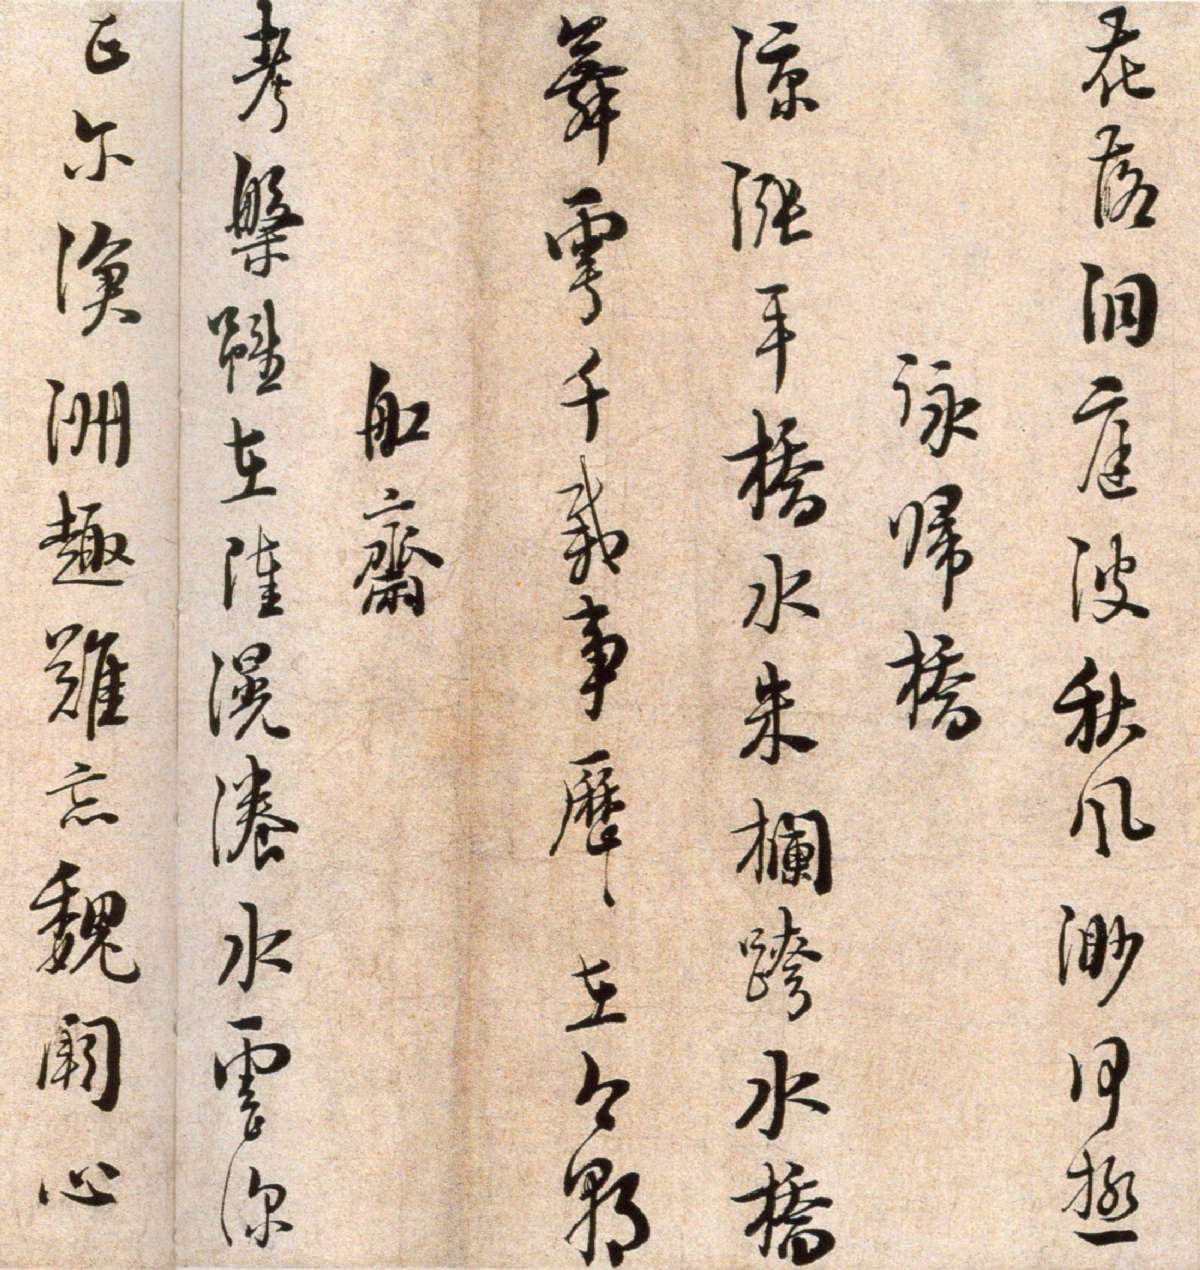 花落洞庭波秋風渺何極
詠歸橋
涼漲平橋水朱欄跨水橋
舞雩千載事歷〻在今朝
船齋
考槃雖在陸滉瀁水雲深
正尔滄洲趣難忘魏闕心